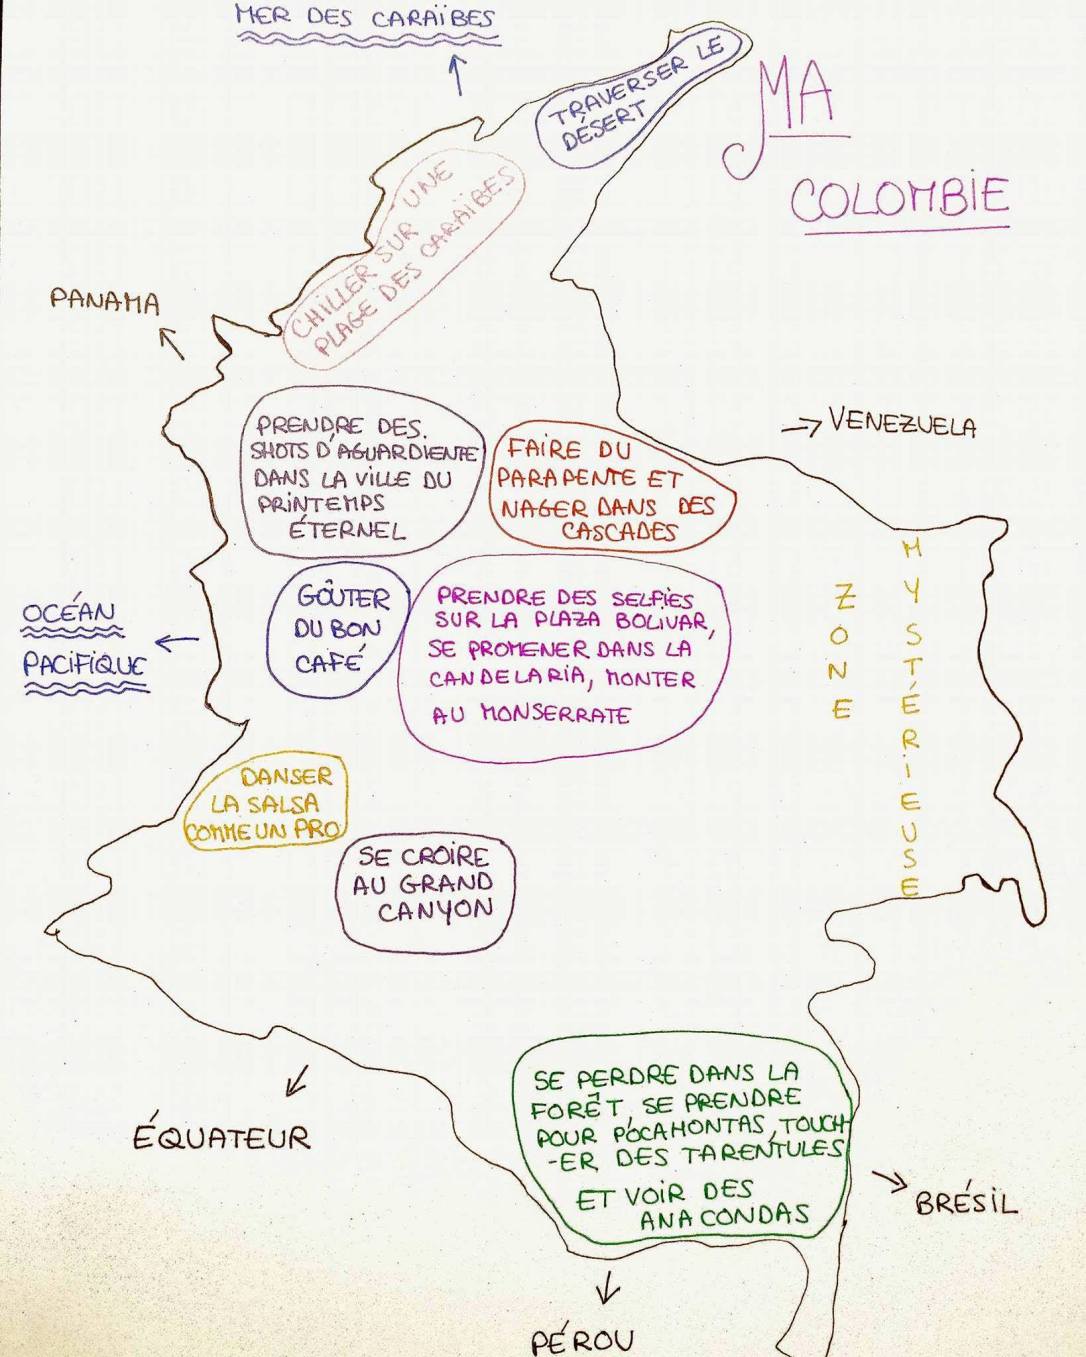 MER DES CARAÏBES
TRAVERSER LE
DÉSERT
MA
COLOMBIE
CHILLER SUR UNE
PLAGE DES CARAÏBES
PANAMA
PRENDRE DES
SHOTS D'AGUARDIENTE
DANS LA VILLE DU
PRINTEMPS
ÉTERNEL
FAIRE DU
PARAPENTE ET
NAGER DANS DES
CASCADES
→ VENEZUELA
ZONE
MYSTÉRIEUSE
OCÉAN
PACIFIQUE
GOÛTER
DU BON
CAFÉ
PRENDRE DES SELFIES
SUR LA PLAZA BOLIVAR,
SE PROMENER DANS LA
CANDELARIA, MONTER
AU MONSERRATE
DANSER
LA SALSA
COMME UN PRO
SE CROIRE
AU GRAND
CANYON
SE PERDRE DANS LA
FORÊT, SE PRENDRE
POUR POCAHONTAS, TOUCH-
-ER DES TARENTULES
ET VOIR DES
ANACONDAS
ÉQUATEUR
BRÉSIL
PÉROU